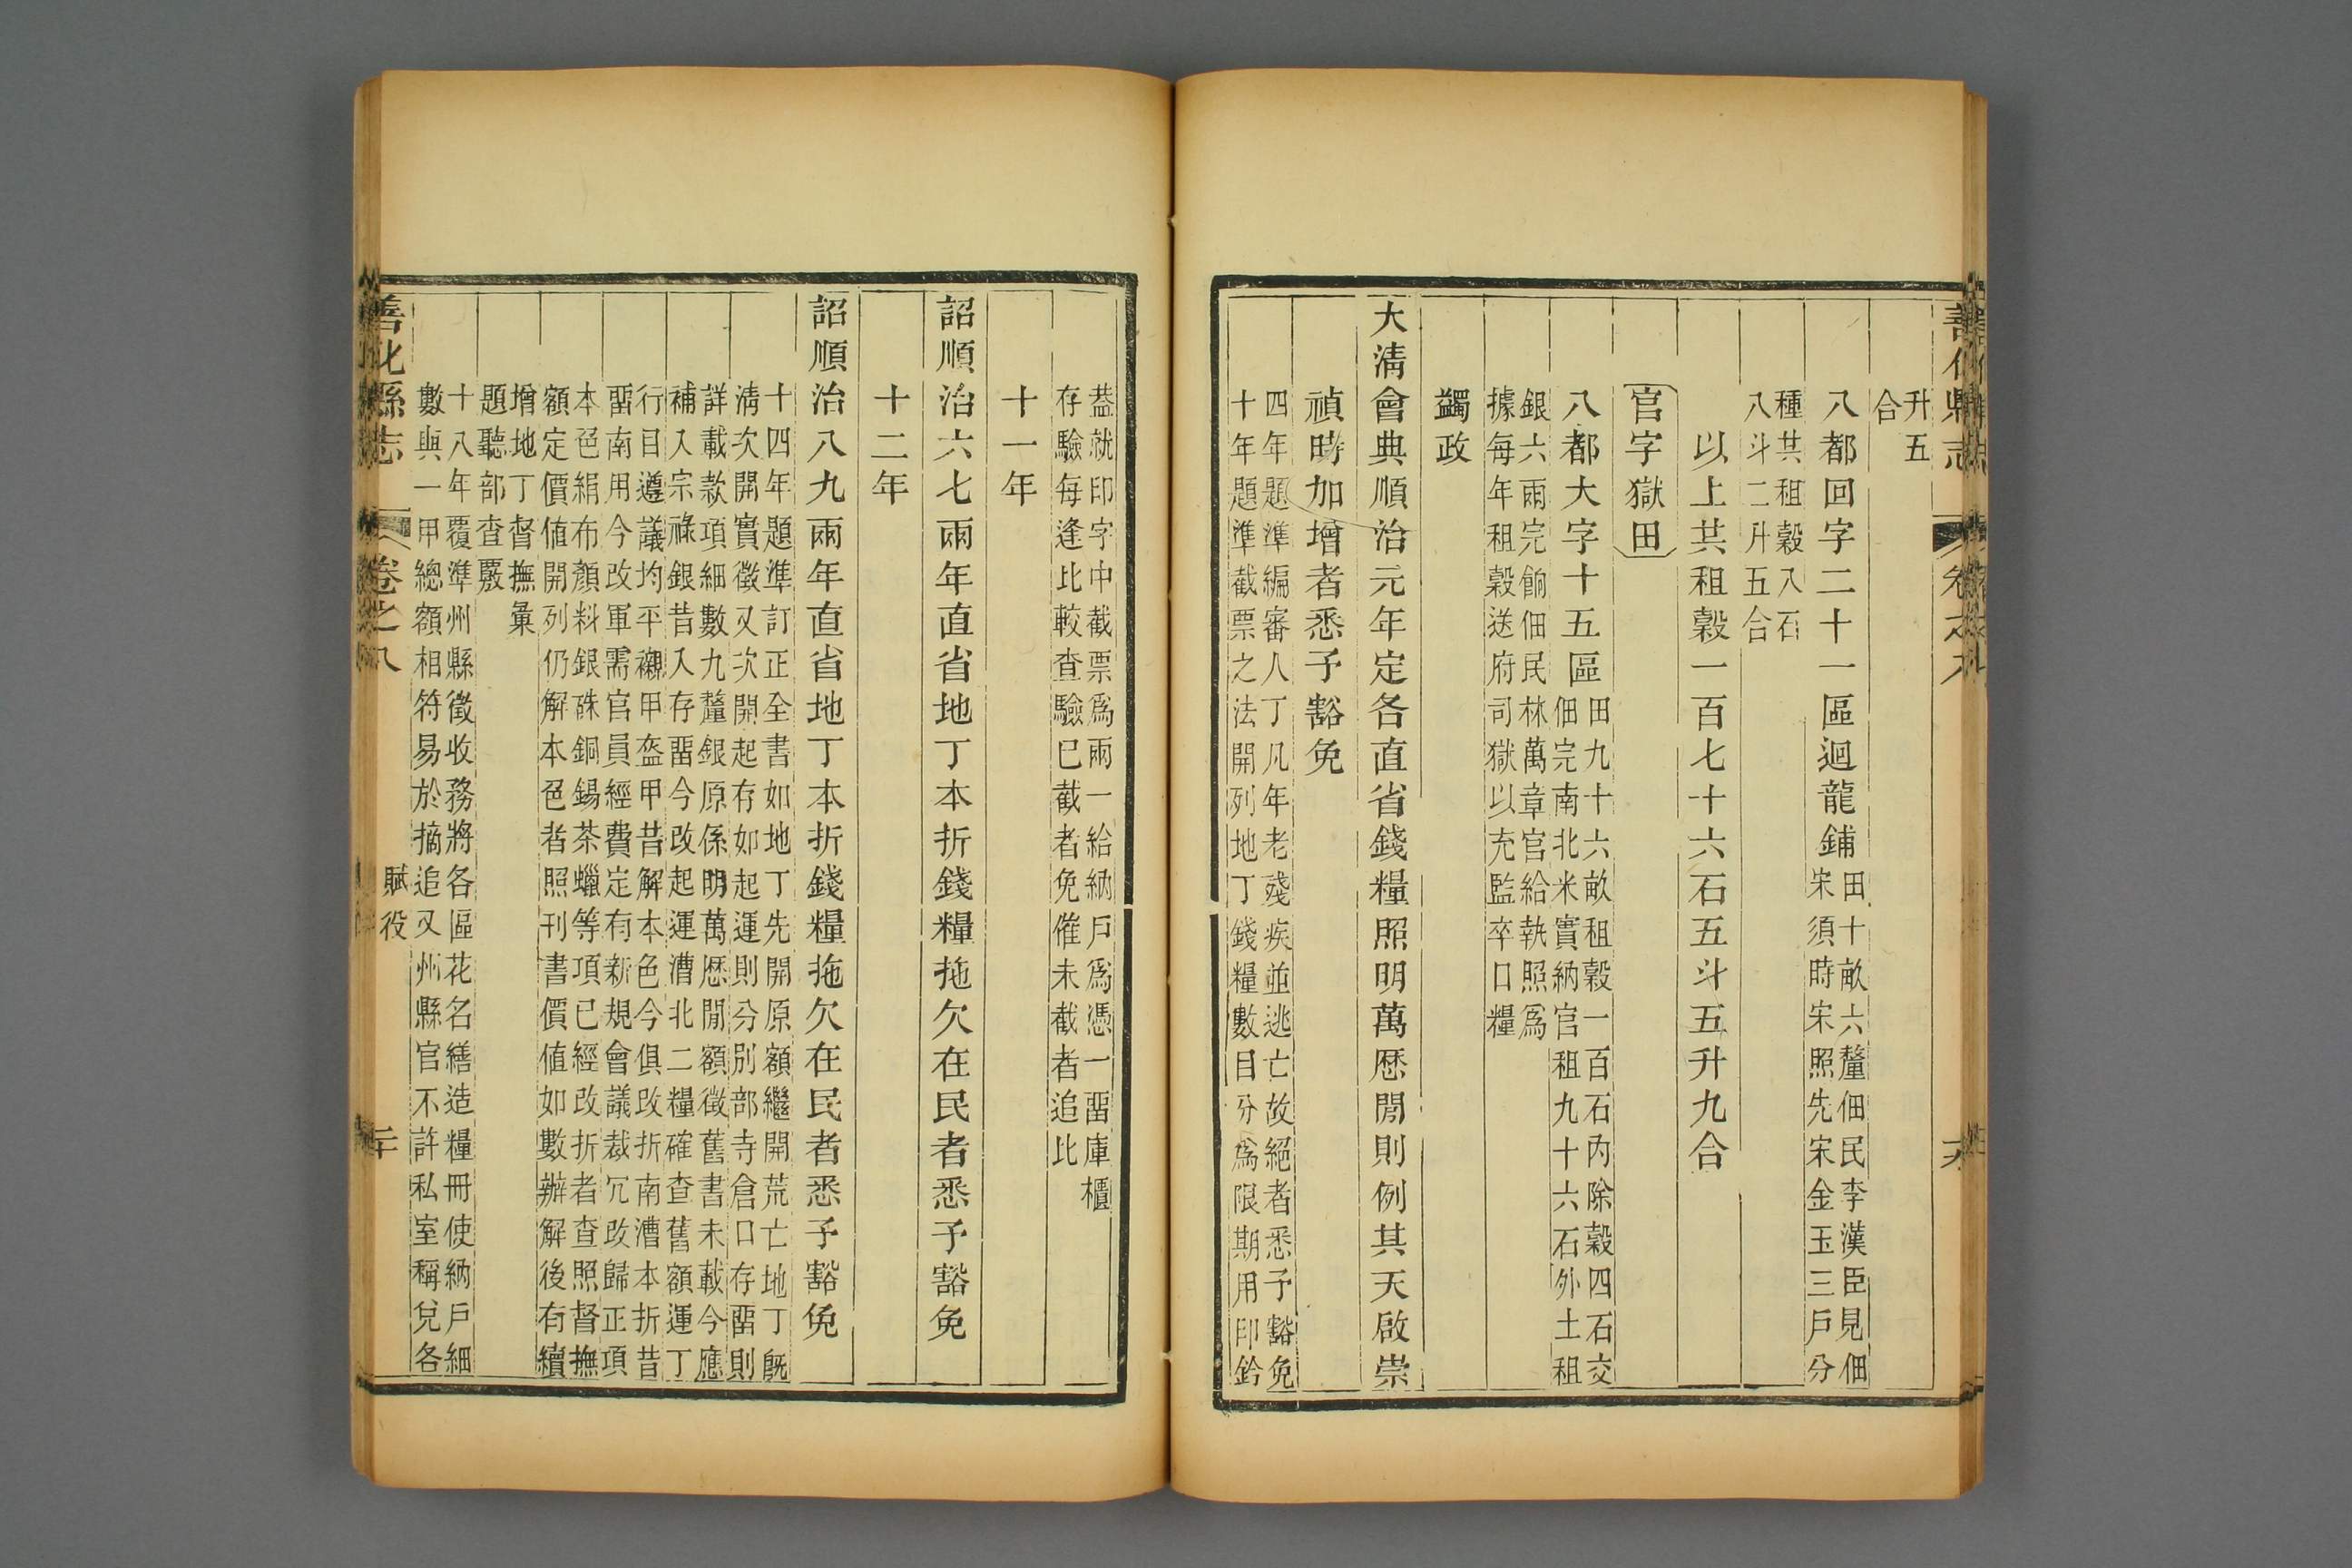 善化縣志
卷之八
升五
合
八都回字二十一區迴龍鋪
田十畝六釐佃民李漢臣見佃
宋須時宋照先宋金玉三戶分
種共租穀八石
八斗二升五合
以上共租穀一百七十六石五斗五升九合
官字獄田
八都大字十五區
田九十六畝租穀一百石內除穀四石交
佃完南北米實納官租九十六石外土租
銀六兩完餉佃民林萬章官給執照爲
據每年租穀送府司獄以充監卒口糧
蠲政
大淸會典順治元年定各直省錢糧照明萬厯閒則例其天啟崇
禎時加增者悉予豁免
四年題準編審人丁凡年老殘疾並逃亡故絕者悉予豁免
十年題準截票之法開列地丁錢糧數目分爲限期用印鈐
葢就印字中截票爲兩一給納戶爲憑一畱庫櫃
存驗每逢比較查驗已截者免催未截者追比
十一年
詔順治六七兩年直省地丁本折錢糧拖欠在民者悉予豁免
十二年
詔順治八九兩年直省地丁本折錢糧拖欠在民者悉予豁免
十四年題準訂正全書如地丁先開原額繼開荒亡地丁旣
淸次開實徵又次開起存如起運則分別部寺倉口存畱則
詳載款項細數九釐銀原係明萬厯閒額徵舊書未載今應
補入宗祿銀昔入存畱今改起運漕北二糧確查舊額運丁
行月遵議均平襯甲盔甲昔解本色今俱改折南漕本折昔
畱南用今改軍需官員經費定有新規會議裁冗改歸正項
本色絹布顏料銀硃銅錫茶蠟等項已經改折者查照督撫
額定價値開列仍解本色者照刊書價値如數辦解後有續
增地丁督撫彙
題聽部查覈
十八年覆準州縣徵收務將各區花名繕造糧冊使納戶細
數與一甲總額相符易於摘追又州縣官不許私室稱兌各
善化縣志
卷之八
賦役
二十